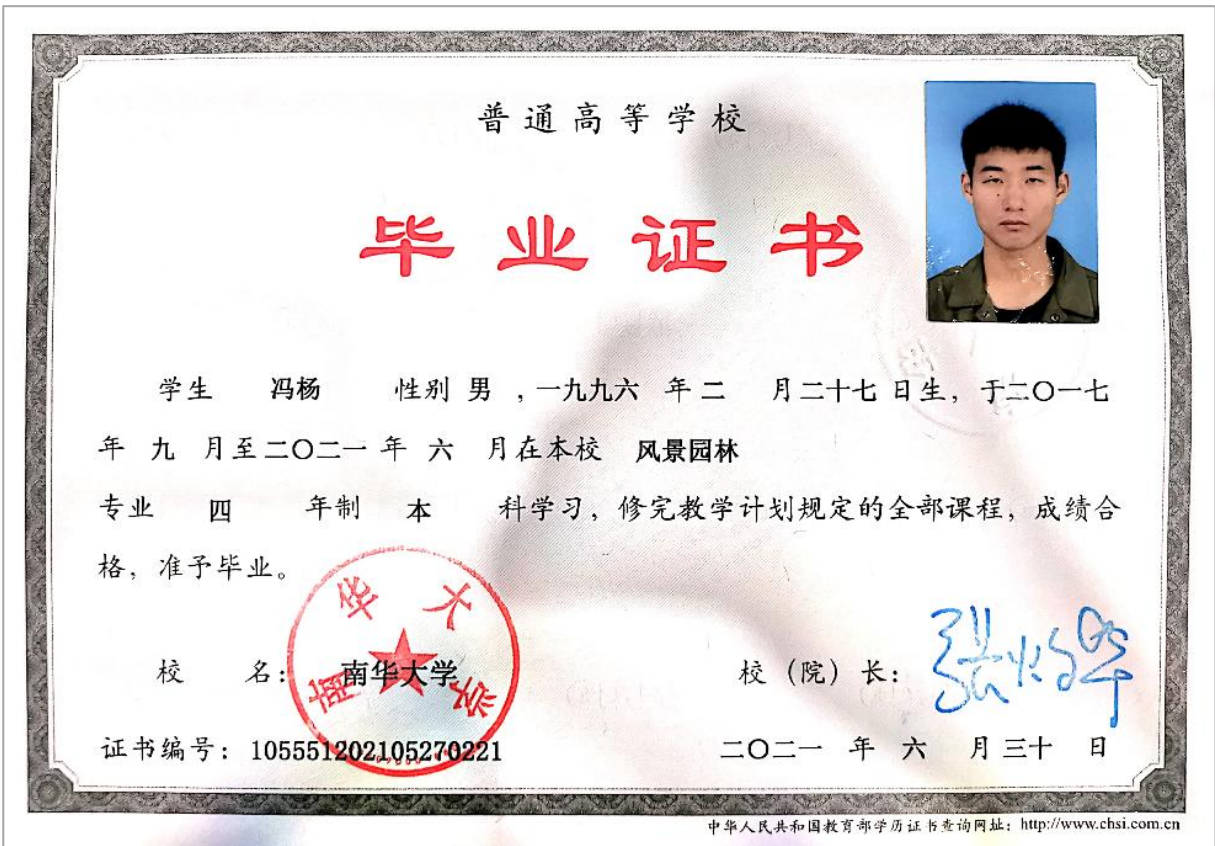 普通高等学校
毕业证书
学生 冯杨 性别 男 ，一九九六 年 二 月二十七 日生，于二〇一七
年 九 月至二〇二一 年 六 月在本校 风景园林
专业 四 年制 本 科学习，修完教学计划规定的全部课程，成绩合
格，准予毕业。
南华大学
校 名：南华大学
校（院）长：
证书编号：105551202105270221
二〇二一 年 六 月三十 日
中华人民共和国教育部学历证书查询网址：http://www.chsi.com.cn